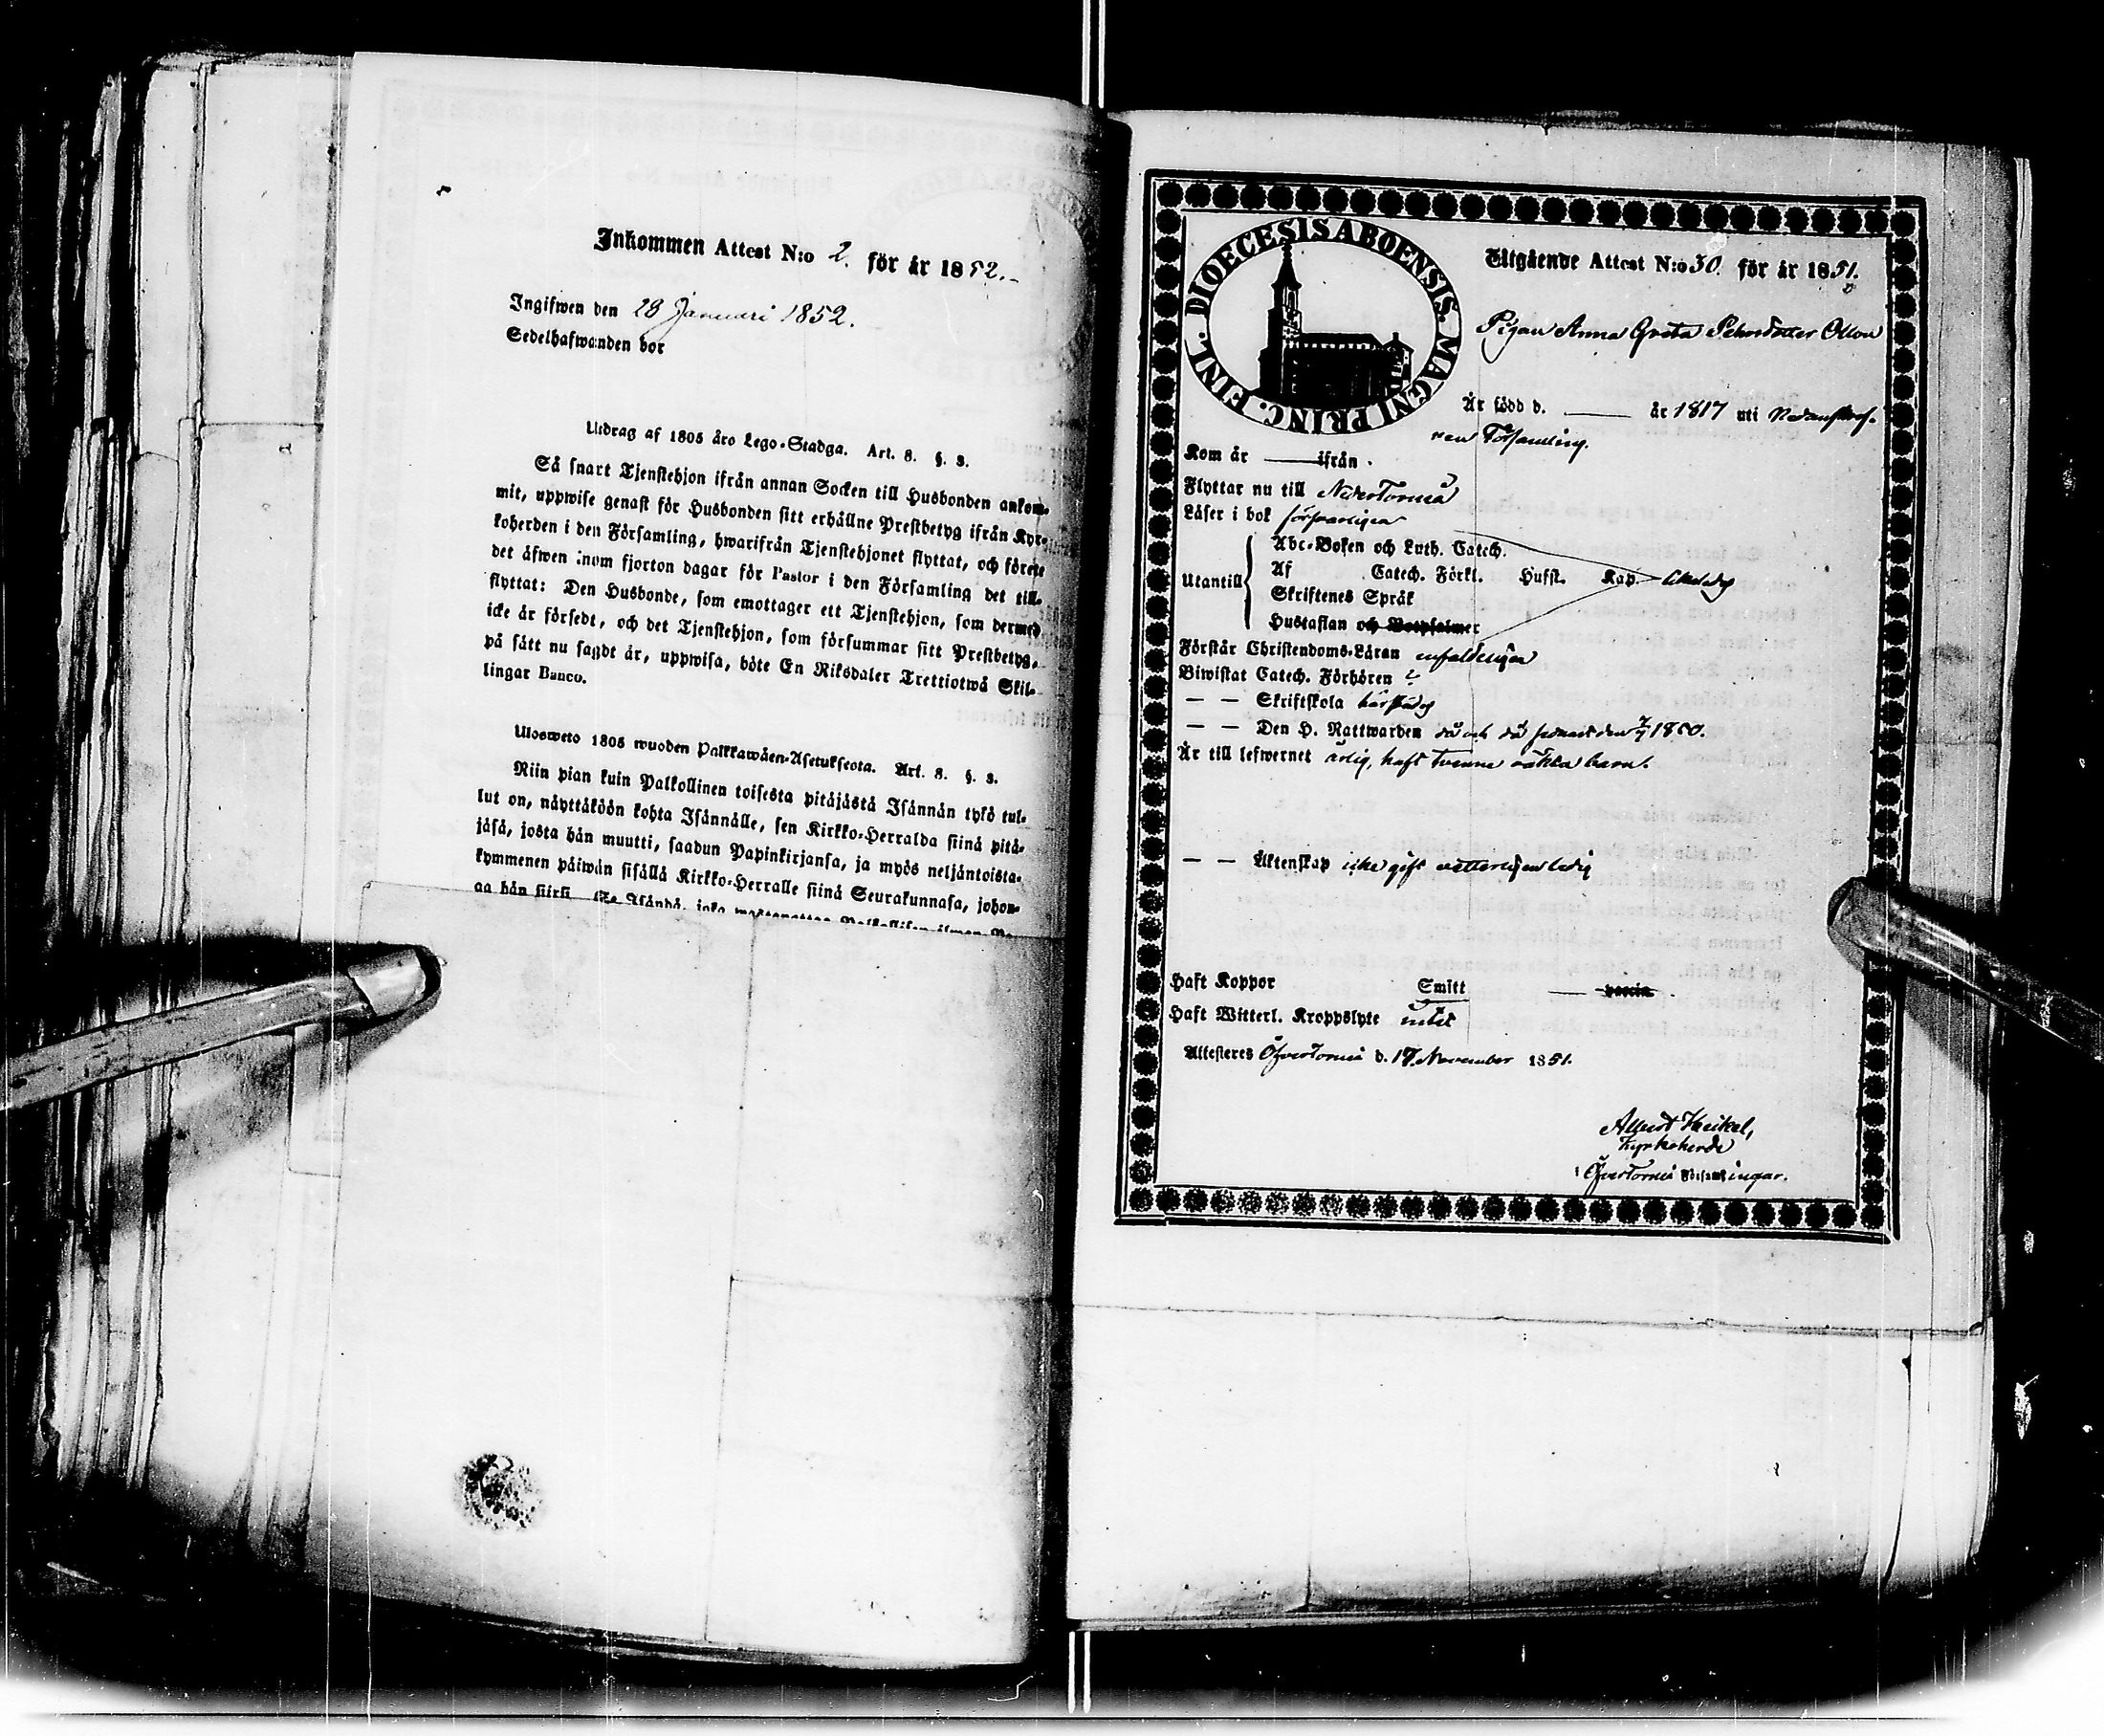 Inkommen Attest N:o 2. för år 1852.
Ingifwen den 28 Januari 1852.
Sedelhafwanden bor
Utdrag af 1805 års Lego-Stadga. Art. 8. §. 3.
Så snart Tjenstehjon ifrån annan Socken till Husbonden ankom-
mit, uppwise genast för Husbonden sitt erhållne Prestbetyg ifrån Kyr-
koherden i den Församling, hwarifrån Tjenstehjonet flyttat, och förete
det äfwen inom fjorton dagar för Pastor i den Församling det till-
flyttat: Den Husbonde, som emottager ett Tjenstehjon, som dermed
icke är försedt, och det Tjenstehjon, som försummar sitt Prestbetyg,
på sätt nu sagdt är, uppwisa, böte En Riksdaler Trettiotwå Skil-
lingar Banco.
Ulosweto 1805 wuoden Palkkawäen-Asetuksesta. Art. 8. §. 3.
Niin pian kuin Palkollinen toisesta pitäjästä Isännän tykö tul-
lut on, näyttäköön kohta Isännälle, sen Kirkko-Herralda siinä pitä-
jäsä, josta hän muutti, saadun Papinkirjansa, ja myös neljäntoista-
kymmenen päiwän sisällä Kirkko-Herralle siinä Seurakunnasa, johon-
ga hän siirsi
FINL. DIOECESIS ABOENSIS. MAGNI PRINC.
Utgående Attest N:o 30. för år 1851.
Pigan Anna Greta Pehrsdotter
Är född d. — år 1817 uti nedanskref-
ven Församling.
Kom år — ifrån
Flyttar nu till NederTorneå
Läser i bok försvarligen
Abc-Boken och Luth. Catech.
Utantill Af Catech. Förkl. Husst. Kap.
Skriftenes Språk
Hustaflan och Botpsalmer
Förstår Christendoms-Läran enfaldeligen
Biwistat Catech. Förhören
— — Skriftskola härstädes
— — Den H. Nattwarden då och då senast den 7/7 1850.
Är till lefwernet ärlig, haft tvenne oäkta barn.
— — Äktenskap icke gift vetterligen ledig
Haft Koppor Smitt —
Haft Witterl. Kroppslyte intet
Attesteras ÖfverTorneå d. 17 November 1851.
Albert Heikel,
Kyrkoherde
i ÖfverTorneå Församlingar.